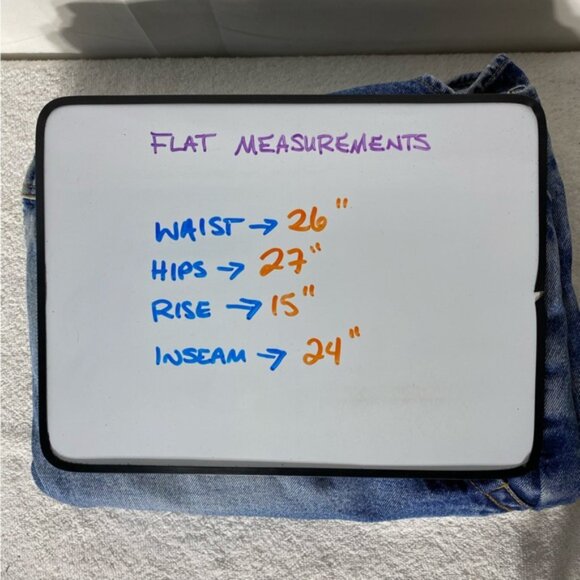 FLAT MEASUREMENTS
WAIST → 26"
HIPS → 27"
RISE → 15"
INSEAM → 24"